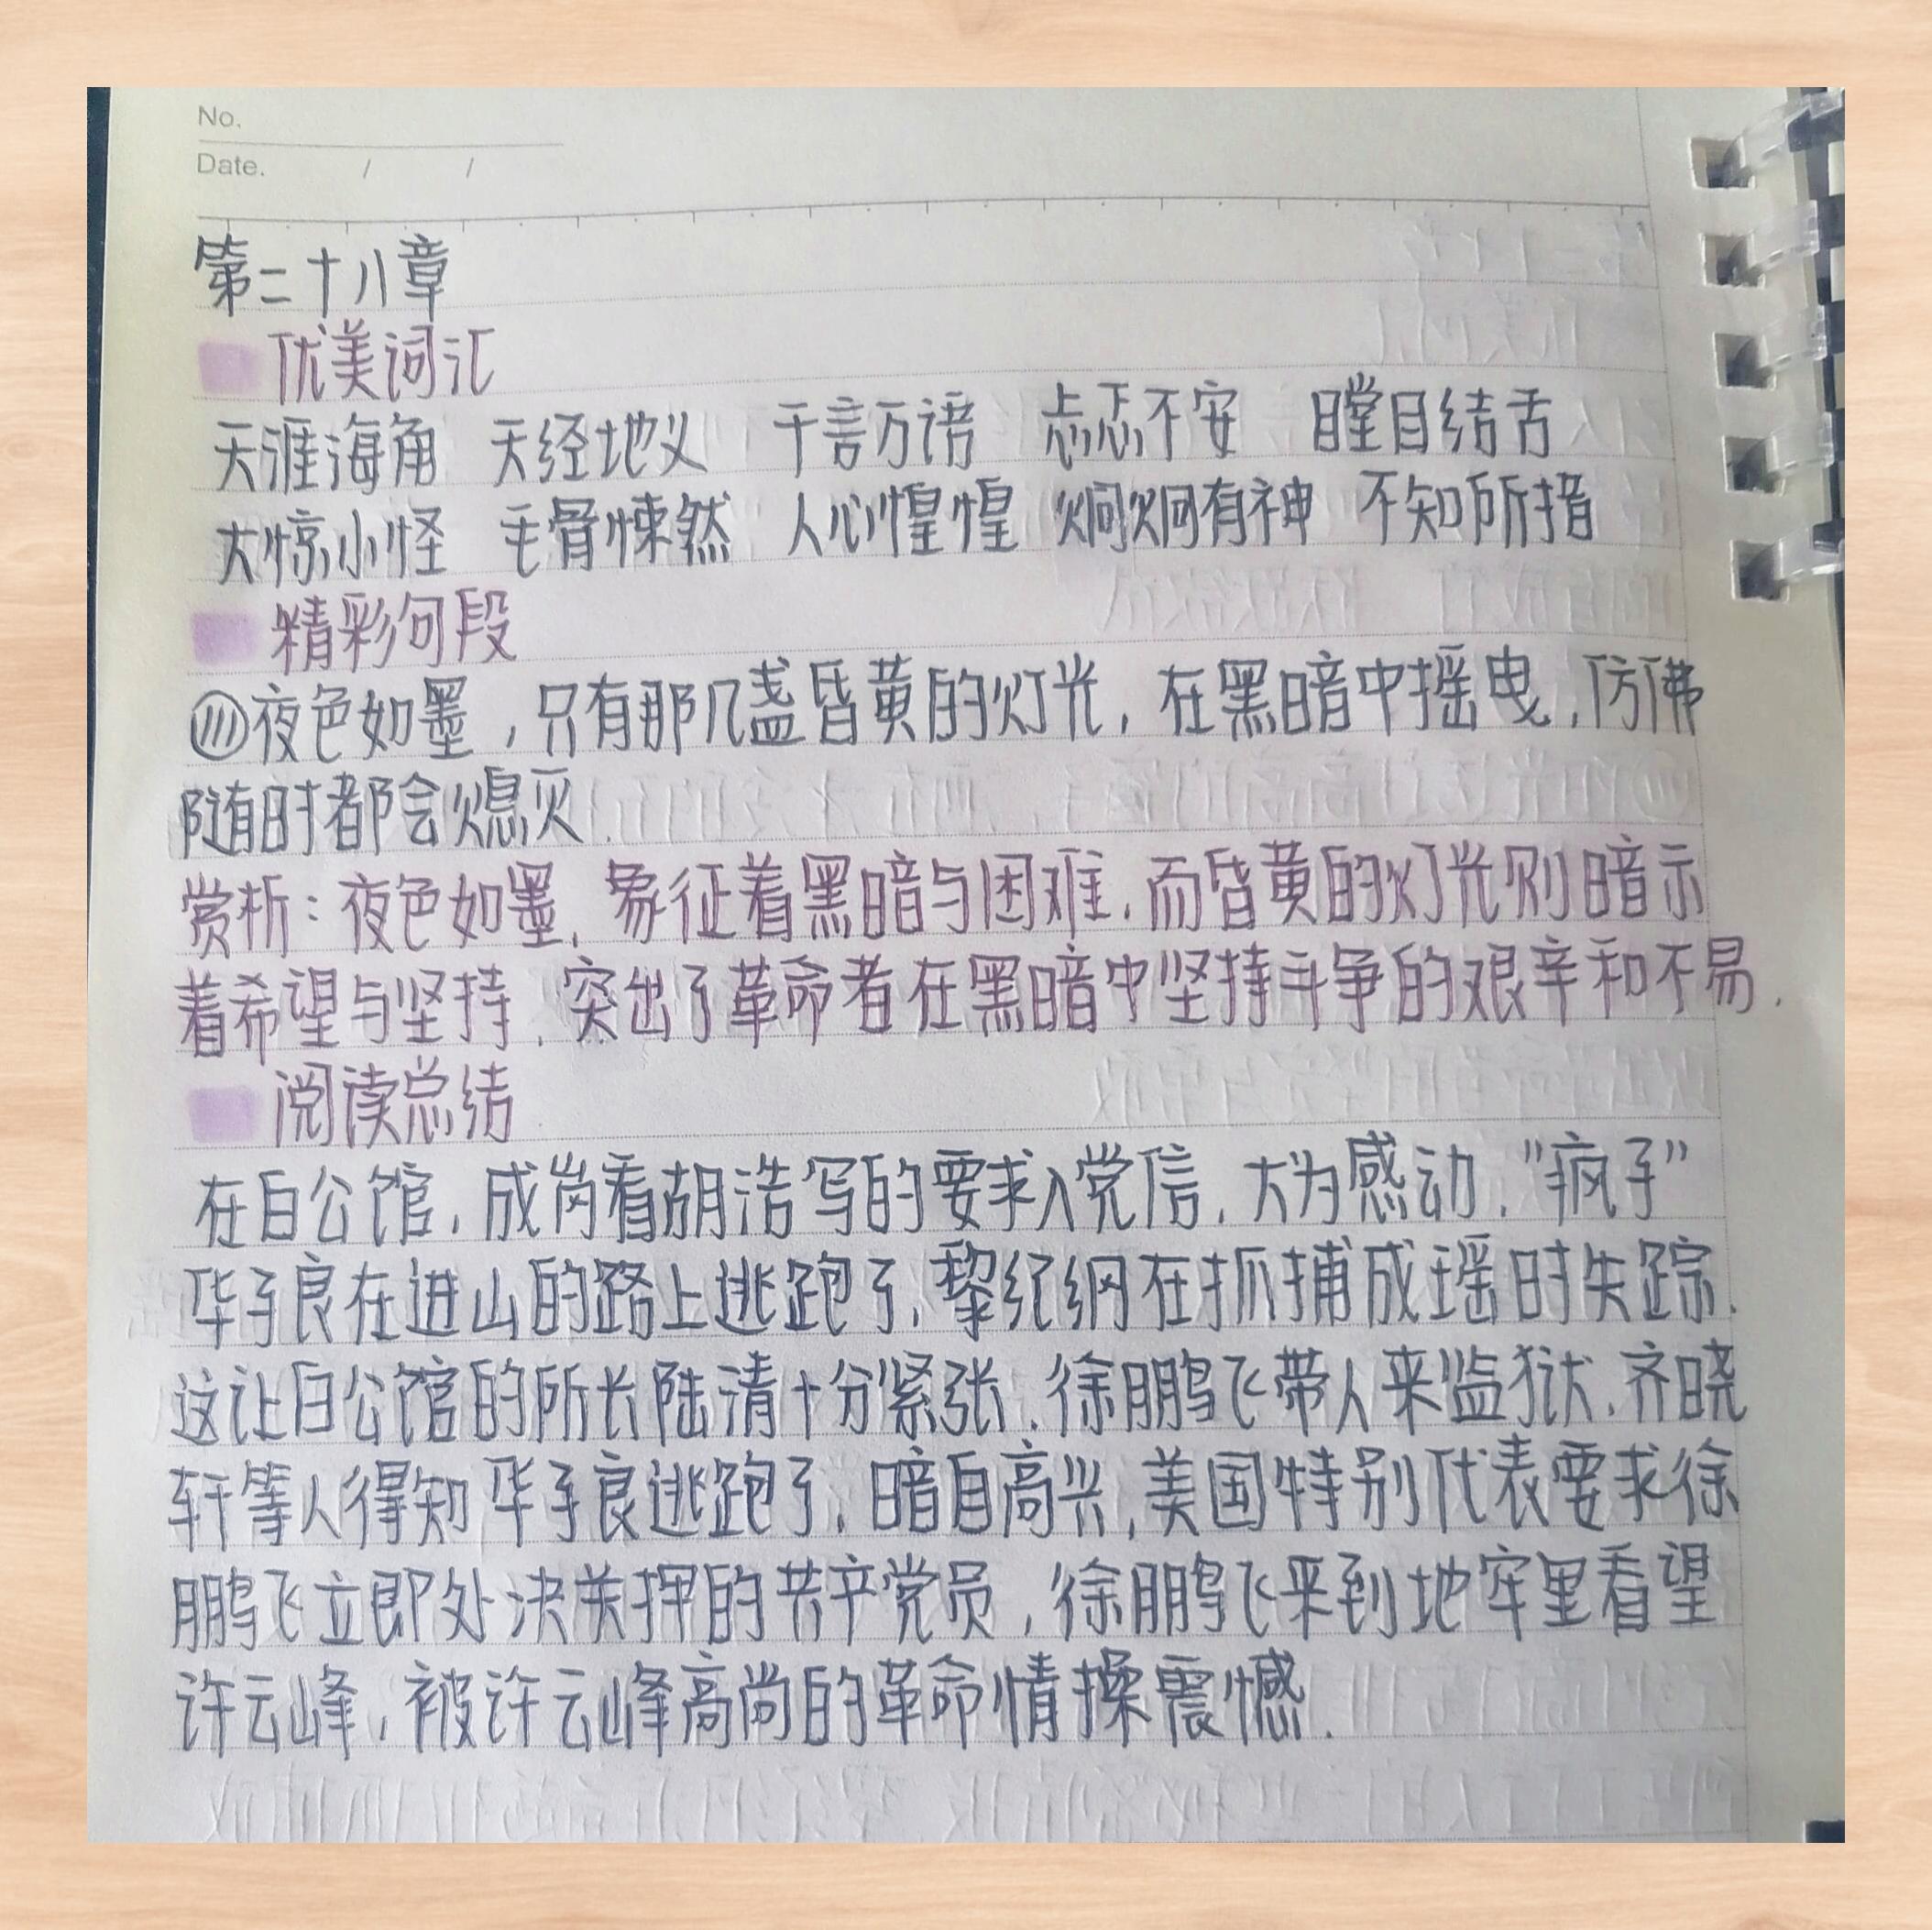 No.
Date. / /
第二十八章
优美词汇
天涯海角 天经地义 千言万语 忐忑不安 瞠目结舌
大惊小怪 毛骨悚然 人心惶惶 炯炯有神 不知所措
精彩句段
夜色如墨，只有那几盏昏黄的灯光，在黑暗中摇曳，仿佛
随时都会熄灭.
赏析：夜色如墨，象征着黑暗与困难，而昏黄的灯光则暗示
着希望与坚持，突出了革命者在黑暗中坚持斗争的艰辛和不易.
阅读总结
在白公馆，成岗看胡浩写的要求入党信，大为感动，“疯子”
华子良在进山的路上逃跑了，黎纪纲在抓捕成瑶时失踪.
这让白公馆的所长陆清十分紧张.徐鹏飞带人来监狱，齐晓
轩等人得知华子良逃跑了，暗自高兴，美国特别代表要求徐
鹏飞立即处决关押的共产党员，徐鹏飞来到地牢里看望
许云峰，被许云峰高尚的革命情操震憾.